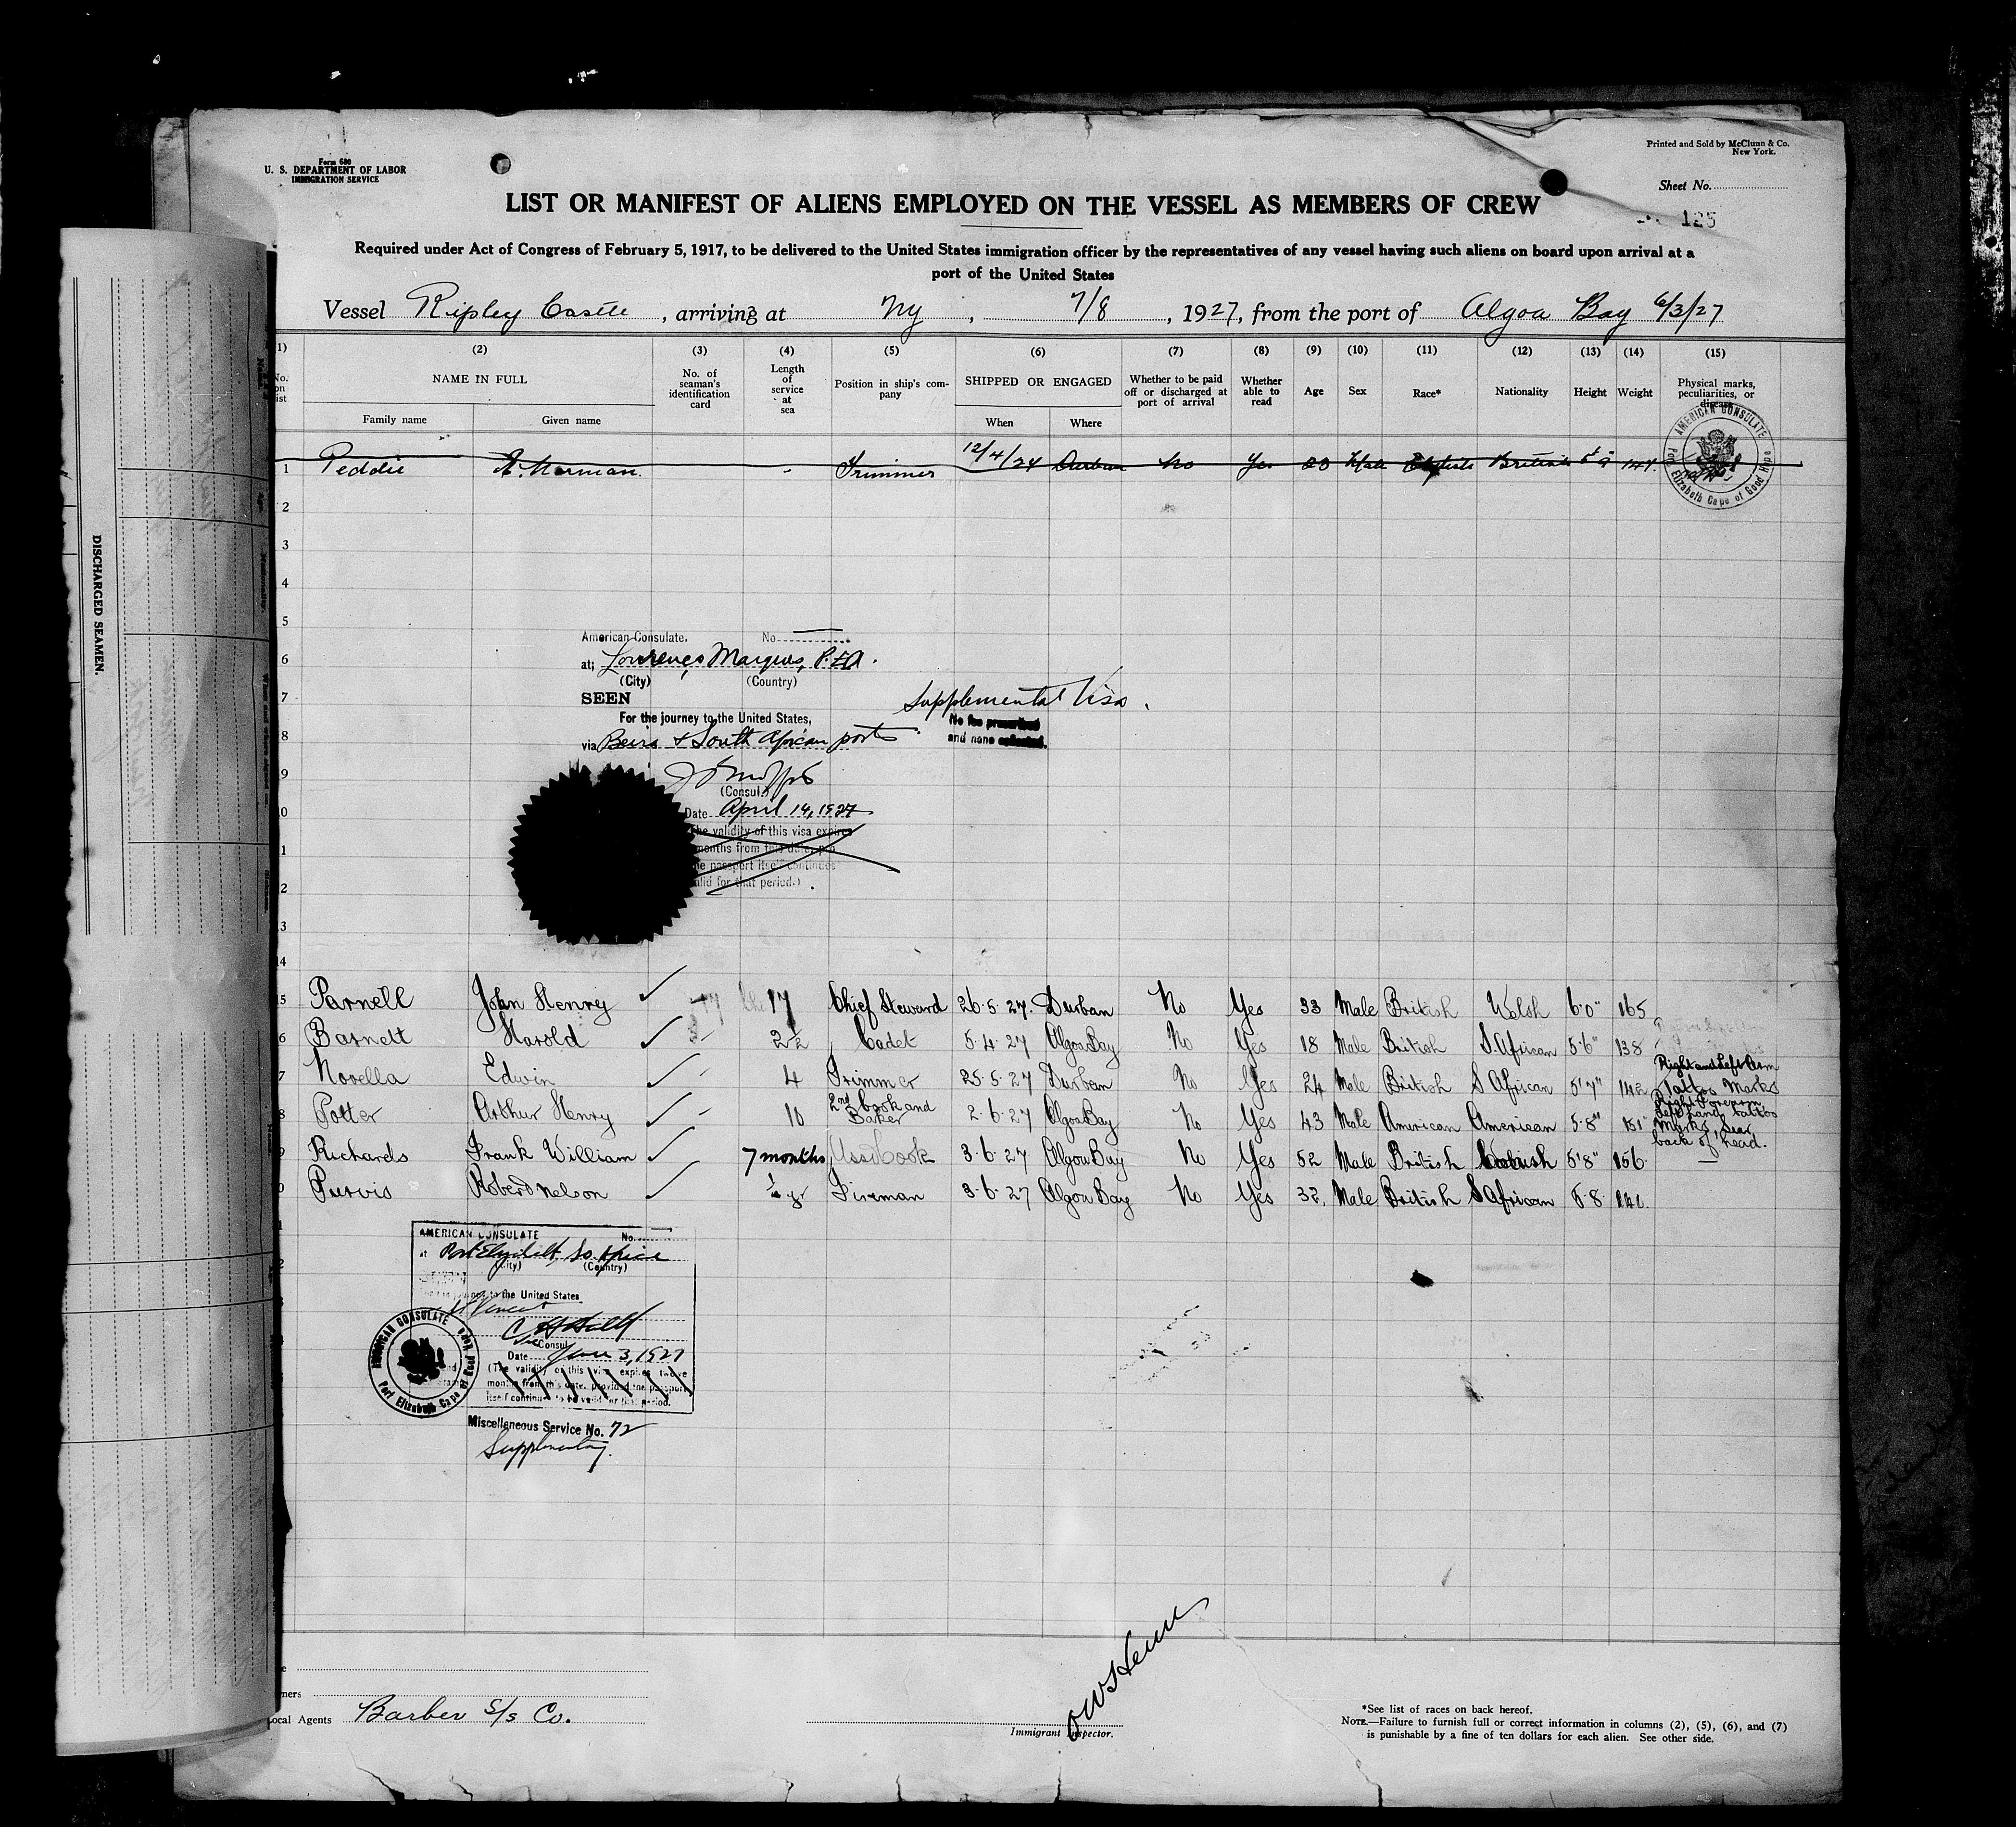 Form 680
U. S. DEPARTMENT OF LABOR
IMMIGRATION SERVICE
Printed and Sold by McClunn & Co.
New York.
Sheet No.
125
LIST OR MANIFEST OF ALIENS EMPLOYED ON THE VESSEL AS MEMBERS OF CREW
Required under Act of Congress of February 5, 1917, to be delivered to the United States immigration officer by the representatives of any vessel having such aliens on board upon arrival at a
port of the United States
Vessel Ripley Castle, arriving at Ny, 7/8, 1927, from the port of Algoa Bay 6/3/27
(1) (2) (3) (4) (5) (6) (7) (8) (9) (10) (11) (12) (13) (14) (15)
No. on list NAME IN FULL No. of seaman's identification card Length of service at sea Position in ship's company SHIPPED OR ENGAGED Whether to be paid off or discharged at port of arrival Whether able to read Age Sex Race* Nationality Height Weight Physical marks, peculiarities, or disease
Family name Given name When Where
AMERICAN CONSULATE
Port Elizabeth Cape of Good Hope
1 Peddie A. Norman - Trimmer 12/4/24 Durban No Yes 20 Male British 5 9 141
2
3
4
5
American Consulate. No
6
at; Lourenço Marques, P.E.A.
(City) (Country)
7
SEEN
Supplemental Visa.
For the journey to the United States,
No fee prescribed
8
via Beira & South African ports
and none collected.
9
(Consul.)
0
Date April 14, 1927
1
The validity of this visa expires
months from this date, pro
the passport itself continues
2
valid for that period.)
3
4
5 Parnell John Henry 17 Chief Steward 26·5·27. Durban No Yes 33 Male British Welsh 6·0" 165
6 Barnett Harold 2½ Cadet 5·4·27 Algoa Bay No Yes 18 Male British S. African 5·6" 138
7 Novella Edwin - 4 Trimmer 25·5·27 Durban No Yes 24 Male British S African 5'7" 142 Right and Left Arm Tattoo Marks
8 Potter Arthur Henry - 10 2nd Cook and Baker 2·6·27 Algoa Bay No Yes 43 Male American American 5·8" 151 Right Forearm Left hand tattoo Marks, Scar back of head.
9 Richards Frank William 7 months Asst Cook 3·6·27 Algoa Bay No Yes 52 Male British 5'8" 156 —
0 Purvis Robert Nelson Fireman 3·6·27 Algoa Bay No Yes 32. Male British S African 5·8·
AMERICAN CONSULATE No.
at Port Elizabeth, So. Africa
(City) (Country)
to the United States
St Vincent
Consul
Date June 3, 1927
(The validity of this visa expires twelve
months from this date, provided the passport
itself continues to be valid for that period.
AMERICAN CONSULATE
Port Elizabeth Cape of Good Hope
Miscellaneous Service No. 72
Supplementary.
DISCHARGED SEAMEN.
Local Agents Barber S/s Co.
Immigrant Inspector.
*See list of races on back hereof.
NOTE.—Failure to furnish full or correct information in columns (2), (5), (6), and (7)
is punishable by a fine of ten dollars for each alien. See other side.